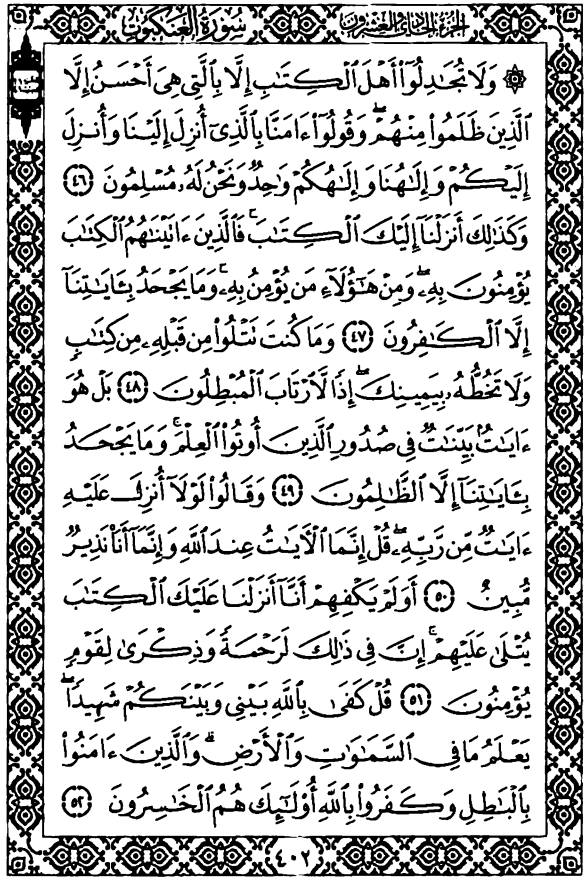 الجزء الحادي والعشرون
سورة العنكبوت
۞ وَلَا تُجَٰدِلُوٓا۟ أَهْلَ ٱلْكِتَٰبِ إِلَّا بِٱلَّتِى هِىَ أَحْسَنُ إِلَّا
ٱلَّذِينَ ظَلَمُوا۟ مِنْهُمْ ۖ وَقُولُوٓا۟ ءَامَنَّا بِٱلَّذِىٓ أُنزِلَ إِلَيْنَا وَأُنزِلَ
إِلَيْكُمْ وَإِلَٰهُنَا وَإِلَٰهُكُمْ وَٰحِدٌ وَنَحْنُ لَهُۥ مُسْلِمُونَ ﴿٤٦﴾
وَكَذَٰلِكَ أَنزَلْنَآ إِلَيْكَ ٱلْكِتَٰبَ ۚ فَٱلَّذِينَ ءَاتَيْنَٰهُمُ ٱلْكِتَٰبَ
يُؤْمِنُونَ بِهِۦ ۖ وَمِنْ هَٰٓؤُلَآءِ مَن يُؤْمِنُ بِهِۦ ۚ وَمَا يَجْحَدُ بِـَٔايَٰتِنَآ
إِلَّا ٱلْكَٰفِرُونَ ﴿٤٧﴾ وَمَا كُنتَ تَتْلُوا۟ مِن قَبْلِهِۦ مِن كِتَٰبٍ
وَلَا تَخُطُّهُۥ بِيَمِينِكَ ۖ إِذًا لَّٱرْتَابَ ٱلْمُبْطِلُونَ ﴿٤٨﴾ بَلْ هُوَ
ءَايَٰتٌۢ بَيِّنَٰتٌ فِى صُدُورِ ٱلَّذِينَ أُوتُوا۟ ٱلْعِلْمَ ۚ وَمَا يَجْحَدُ
بِـَٔايَٰتِنَآ إِلَّا ٱلظَّٰلِمُونَ ﴿٤٩﴾ وَقَالُوا۟ لَوْلَآ أُنزِلَ عَلَيْهِ
ءَايَٰتٌ مِّن رَّبِّهِۦ ۖ قُلْ إِنَّمَا ٱلْءَايَٰتُ عِندَ ٱللَّهِ وَإِنَّمَآ أَنَا۠ نَذِيرٌ
مُّبِينٌ ﴿٥٠﴾ أَوَلَمْ يَكْفِهِمْ أَنَّآ أَنزَلْنَا عَلَيْكَ ٱلْكِتَٰبَ
يُتْلَىٰ عَلَيْهِمْ ۚ إِنَّ فِى ذَٰلِكَ لَرَحْمَةً وَذِكْرَىٰ لِقَوْمٍ
يُؤْمِنُونَ ﴿٥١﴾ قُلْ كَفَىٰ بِٱللَّهِ بَيْنِى وَبَيْنَكُمْ شَهِيدًا ۖ
يَعْلَمُ مَا فِى ٱلسَّمَٰوَٰتِ وَٱلْأَرْضِ ۗ وَٱلَّذِينَ ءَامَنُوا۟
بِٱلْبَٰطِلِ وَكَفَرُوا۟ بِٱللَّهِ أُو۟لَٰٓئِكَ هُمُ ٱلْخَٰسِرُونَ ﴿٥٢﴾
٤٠٢